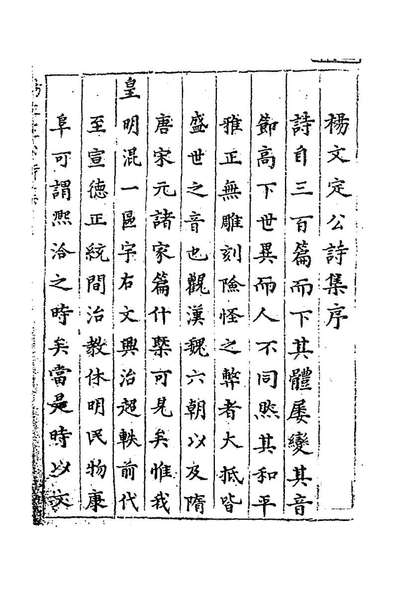 楊文定公詩集序
詩自三百篇而下其體屡變其音
節高下世異而人不同然其和平
雅正無雕刻險怪之弊者大抵皆
盛世之音也觀漢魏六朝以及隋
唐宋元諸家篇什槩可見矣惟我
皇明混一區宇右文興治超軼前代
至宣德正統間治教休明民物康
阜可謂熙洽之時矣當是時以文